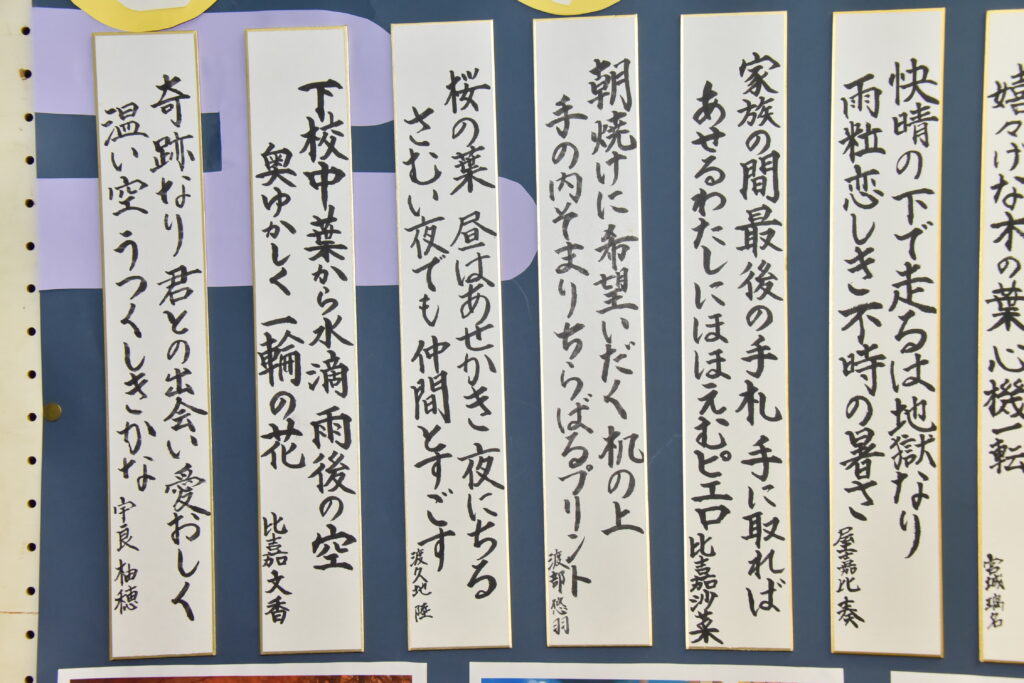 嬉々げな木の葉心機一転
宮城 璃名
快晴の下で走るは地獄なり
雨粒恋しき不時の暑さ
屋嘉比 奏
家族の間最後の手札 手に取れば
あせるわたしにほほえむピエロ
比嘉沙菜
朝焼けに希望いだく机の上
手の内そまりちらばるプリント
渡部悠羽
桜の葉 昼はあせかき 夜にちる
さむい夜でも仲間とすごす
渡久地 陸
下校中葉から水滴 雨後の空
奥ゆかしく一輪の花
比嘉文香
奇跡なり 君との出会い 愛おしく
温い空 うつくしきかな
宇良 柚穂